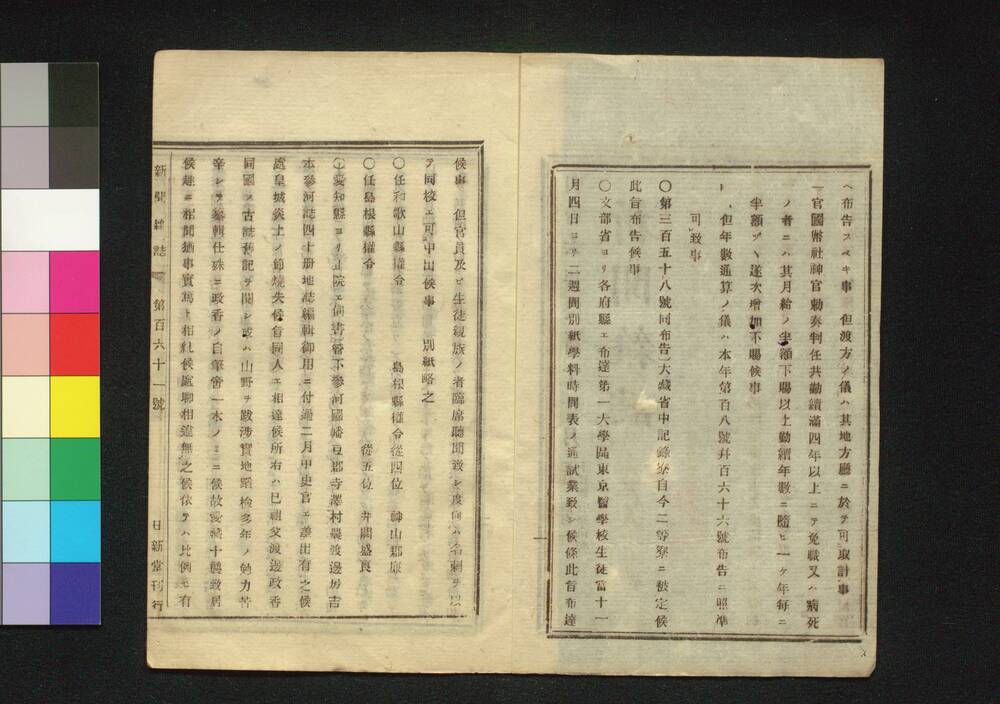 ヘ布告スベキ事　但渡方ノ儀ハ其地方廳ニ於テ可取計事
一官國幣社神官勅奏判任共勤續滿四年以上ニテ免職又ハ病死
ノ者ニハ其月給ノ半額下賜以上勤續年數ニ隨ヒ一ケ年毎ニ
半額ヅヽ遂次增加下賜候事
但年數通算ノ儀ハ本年第百八號幷百六十六號布告ニ照準
可致事
〇第三百五十八號同布告大藏省中記錄寮自今二等寮ニ被定候
此旨布告候事
〇文部省ヨリ各府縣エ布達第一大學區東京醫學校生徒當十一
月四日ヨリ二週間別紙學科時間表ノ通試業致シ候條此旨布達
候事　但官員及ヒ生徒親族ノ者臨席聽聞致シ度向ハ名刺ヲ以
テ同校エ可申出候事　別紙略之
〇任和歌山縣權令　島根縣權令從四位　神山郡廉
〇任島根縣權令　從五位　井關盛良
〇愛知縣ヨリ正院エ伺書管下參河國幡豆郡寺澤村農渡邊房吉
本參河誌四十册地誌編輯御用ニ付過二月中史官エ差出有之候
處皇城炎上ノ節燒失候旨同人エ相達候所右ハ已祖父渡邊政香
同國ノ古誌舊記ヲ閲シ或ハ山野ヲ跋涉實地蹈檢多年ノ勉力苦
辛シテ編輯仕殊ニ政香ノ自筆當一本ノミニ候故愛藏十襲致居
候趣ニ相聞猶事實篤ト相糺候處聊相違無之候依テハ比例モ有
新聞雜誌　第百六十一號　日新堂刊行